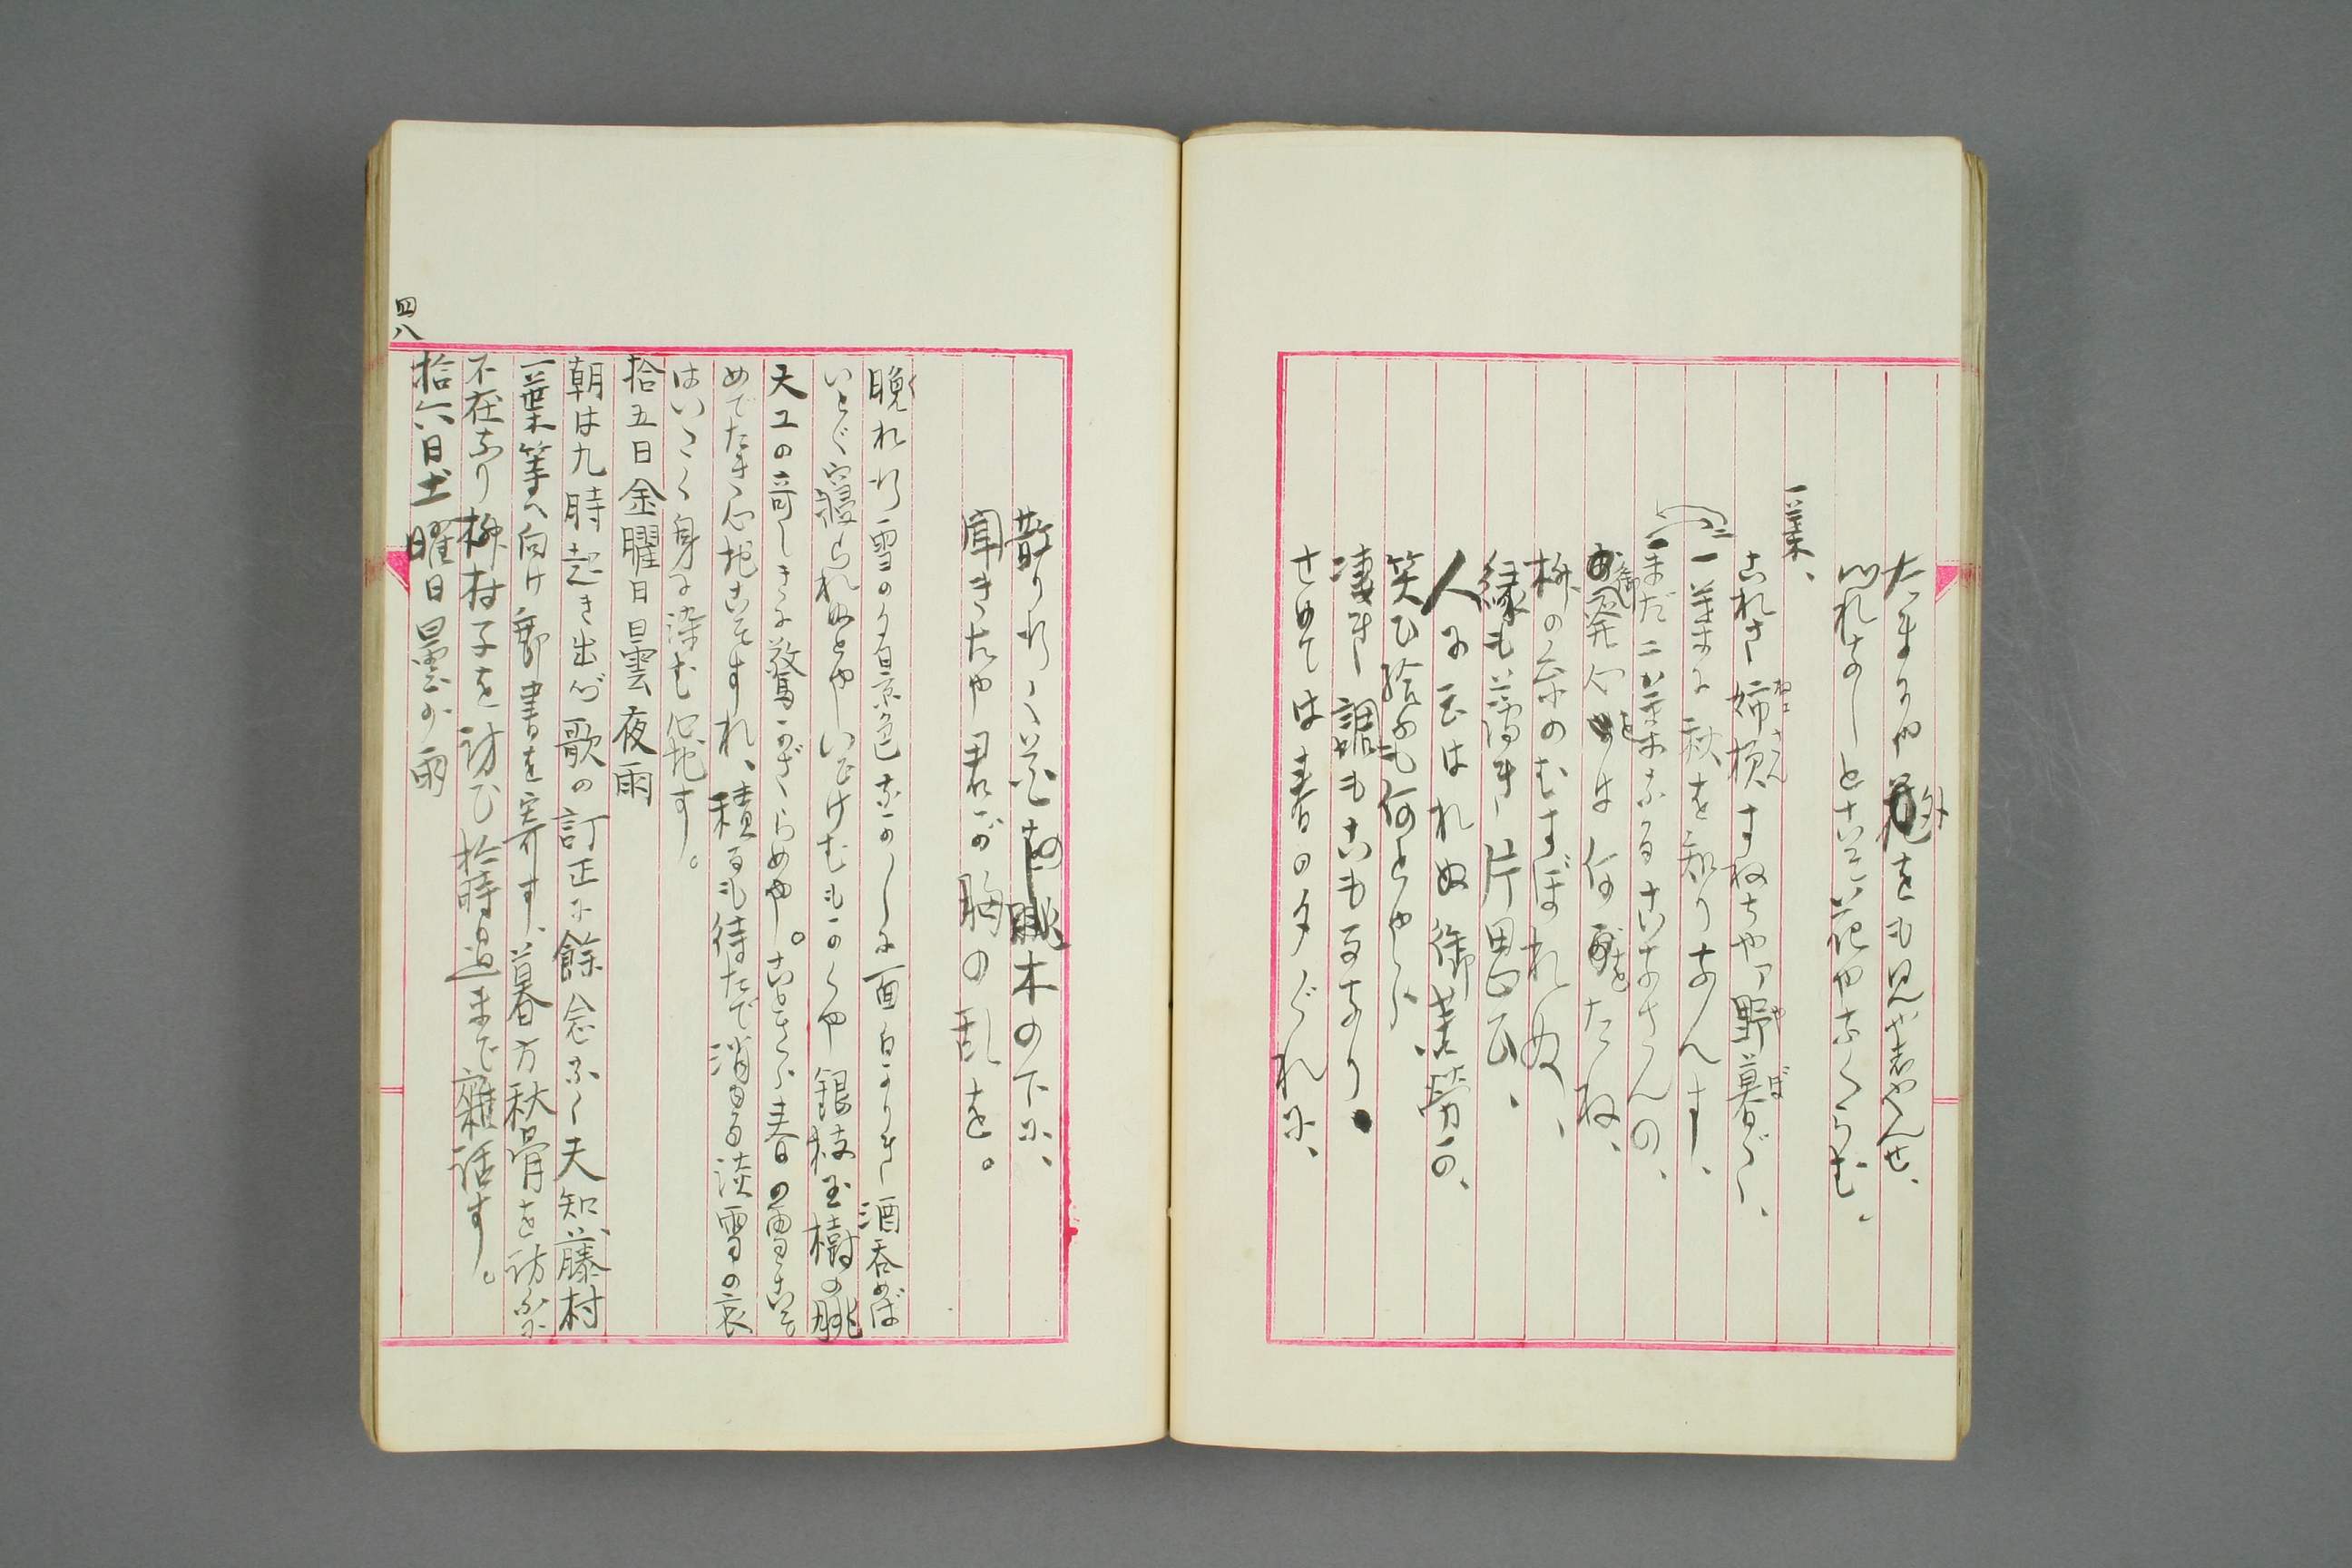 たまには穐をも見やしやんせ、
心れなしと云花やなくらむ、
一葉、
これさ姉様すねちやア野暮だ、
一葉に秋を知りなんす、
まだ二か葉なるになさんの、
御発心とは何をたね、
柳の糸のむすぼれぬ、
縁も薄き片思ひ、
人に云はれぬ御苦労の、
笑ひ給ふも何とやら、
凄き調もこもるなり。
せめては春の夕ぐれに、
散り行く花の木の下に、
聞きたや君が胸の乱を。
晩れ行雪の夕景色なつかしに面白かりき酒呑めば
いとゞ寝られぬとやいひけむものくや銀枝玉樹の眺
天工の奇しきに驚かざらめや。ことさら春の雪こそ
めでたき心地こそすれ、積るも待たで消ゆる淡雪の哀
はいとゞ身に染む心地す。
拾五日金曜日曇夜雨
朝は九時起き出で歌の訂正に餘念なく天知、藤村
一葉等へ向け郵書を寄す、暮方秋骨を訪ふに
不在なり柳村子を訪ひ拾時過まで雑話す。
拾六日土曜日曇少雨
四八